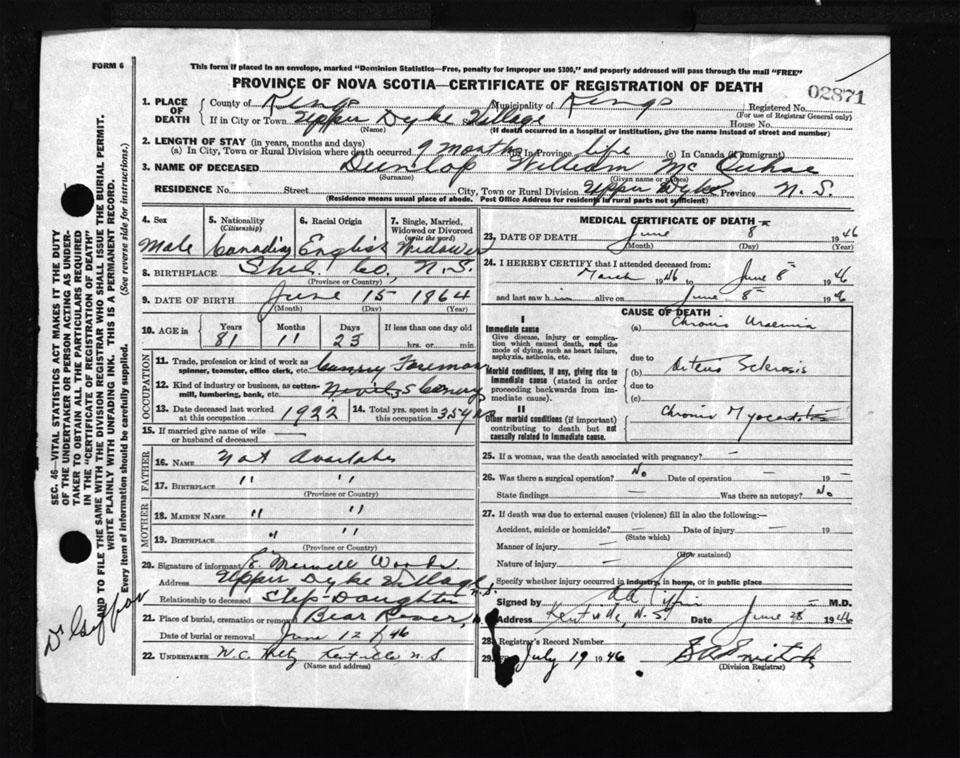 FORM 6
This form if placed in an envelope, marked "Dominion Statistics—Free, penalty for improper use $300," and properly addressed will pass through the mail "FREE"
PROVINCE OF NOVA SCOTIA—CERTIFICATE OF REGISTRATION OF DEATH
02871
1. PLACE OF DEATH County of Kings Municipality of Kings Registered No.
(For use of Registrar General only)
If in City or Town Upper Dyke Village House No.
(Name) (If death occurred in a hospital or institution, give the name instead of street and number)
2. LENGTH OF STAY (in years, months and days)
(a) In City, Town or Rural Division where death occurred 9 months In Province life (c) In Canada (if immigrant)
3. NAME OF DECEASED Dunlop William
(Surname) (Given name or names)
RESIDENCE No. Street City, Town or Rural Division Upper Dyke Province N.S.
(Residence means usual place of abode. Post Office Address for residents in rural parts not sufficient)
4. Sex Male
5. Nationality (Citizenship) Canadian
6. Racial Origin English
7. Single, Married, Widowed or Divorced (write the word) Widower
8. BIRTHPLACE Shel. Co, N.S.
(Province or Country)
9. DATE OF BIRTH June 15 1864
(Month) (Day) (Year)
10. AGE in Years 81 Months 11 Days 23 If less than one day old hrs. or min.
OCCUPATION
11. Trade, profession or kind of work as spinner, teamster, office clerk, etc. Foreman
12. Kind of industry or business, as cotton-mill, lumbering, bank, etc.
13. Date deceased last worked at this occupation 1922
14. Total yrs. spent in this occupation 35
15. If married give name of wife or husband of deceased —
FATHER
16. NAME Not Available
17. BIRTHPLACE " "
(Province or Country)
MOTHER
18. MAIDEN NAME " "
19. BIRTHPLACE " "
(Province or Country)
20. Signature of informant E.
Address Upper Dyke Village N.S.
Relationship to deceased Step-Daughter
21. Place of burial, cremation or removal Bear River,
Date of burial or removal June 12 /46
22. UNDERTAKER W.C. Kentville N.S.
(Name and address)
MEDICAL CERTIFICATE OF DEATH
23. DATE OF DEATH June 8th 1946
(Month) (Day) (Year)
24. I HEREBY CERTIFY that I attended deceased from:
March 1946 to June 8th 1946
and last saw him alive on June 8th 1946
CAUSE OF DEATH
I
Immediate cause
Give disease, injury or complication which caused death, not the mode of dying, such as heart failure, asphyxia, asthenia, etc.
(a) Chronic Uraemia
due to
Morbid conditions, if any, giving rise to immediate cause (stated in order proceeding backwards from immediate cause).
(b) Arterio Sclerosis
due to
(c)
II
Other morbid conditions (if important) contributing to death but not causally related to immediate cause.
Chronic Myocarditis
25. If a woman, was the death associated with pregnancy? —
26. Was there a surgical operation? No Date of operation — 19
State findings — Was there an autopsy? No
27. If death was due to external causes (violence) fill in also the following:—
Accident, suicide or homicide? — Date of injury — 19
(State which)
Manner of injury —
(How sustained)
Nature of injury —
Specify whether injury occurred in industry, in home, or in public place
Signed by M.D.
Address Kentville, N.S. Date June 28 1946
28. Registrar's Record Number
29. July 19 1946
(Division Registrar)
SEC. 46—VITAL STATISTICS ACT MAKES IT THE DUTY OF THE UNDERTAKER OR PERSON ACTING AS UNDERTAKER TO OBTAIN ALL THE PARTICULARS REQUIRED IN THE "CERTIFICATE OF REGISTRATION OF DEATH" AND TO FILE THE SAME WITH THE DIVISION REGISTRAR WHO SHALL ISSUE THE BURIAL PERMIT.
WRITE PLAINLY WITH UNFADING INK. THIS IS A PERMANENT RECORD.
Every item of information should be carefully supplied. (See reverse side for instructions.)
Dr